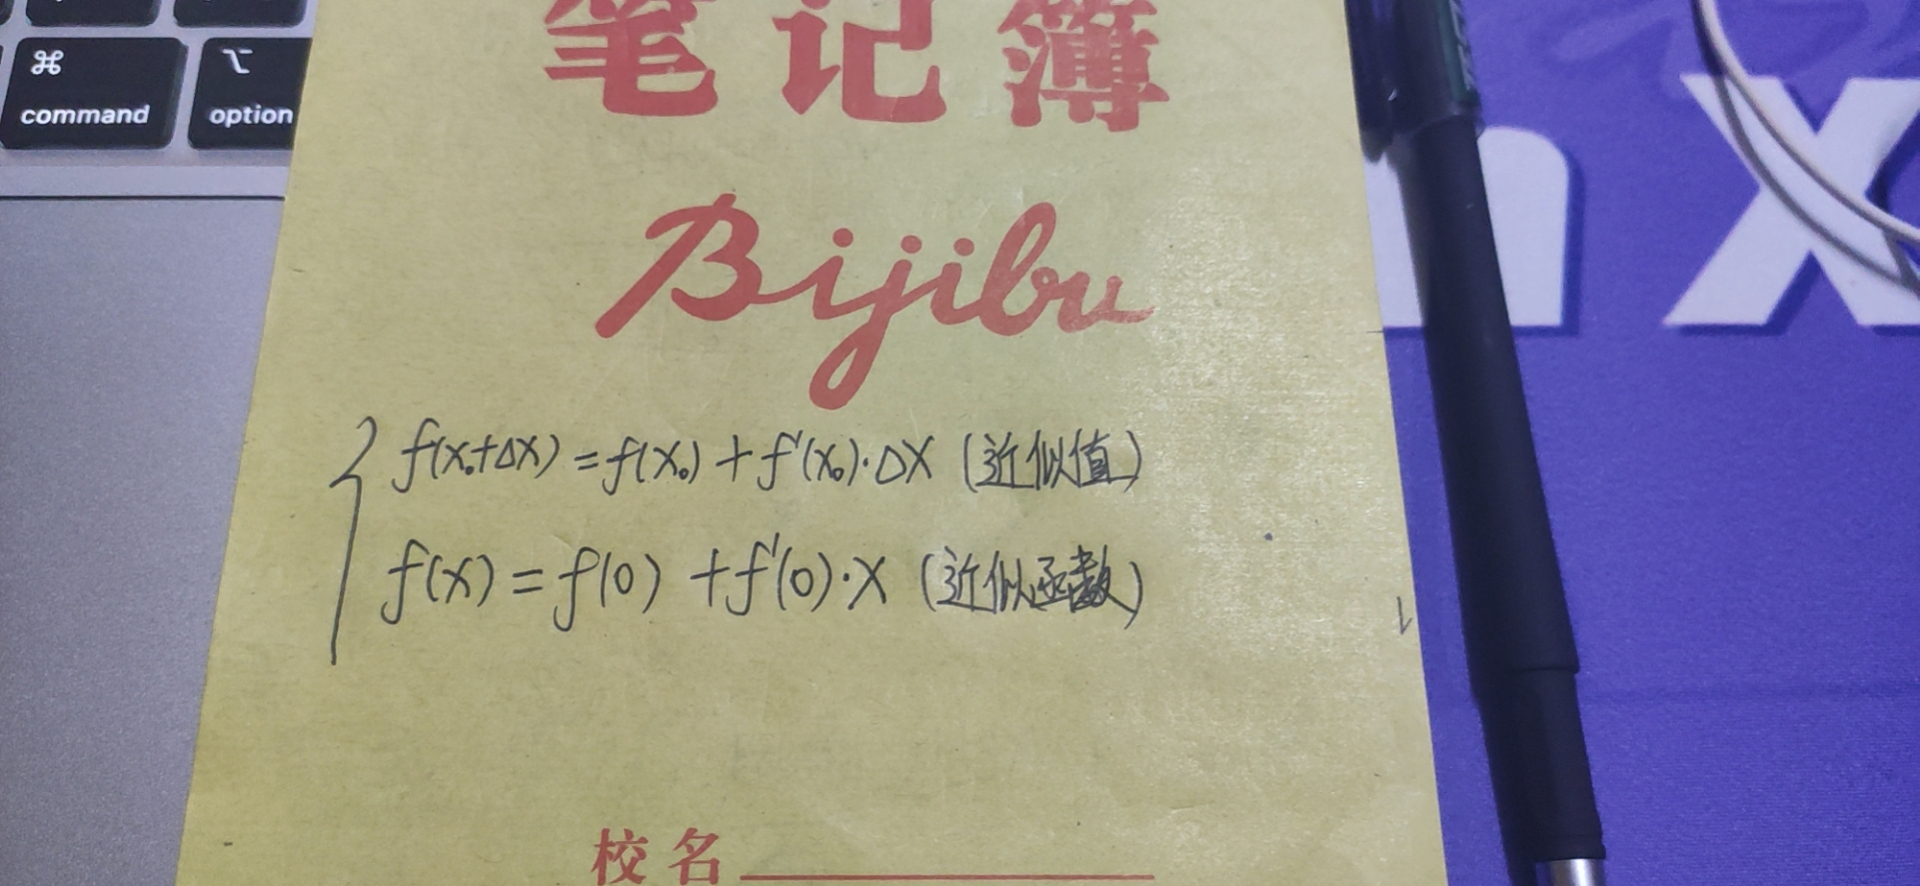 ⌘ ⌥
command option
笔记簿
Bijibu
f(x₀+Δx)=f(x₀)+f'(x₀)·Δx (近似值)
f(x)=f(0)+f'(0)·x (近似函数)
校名
n X